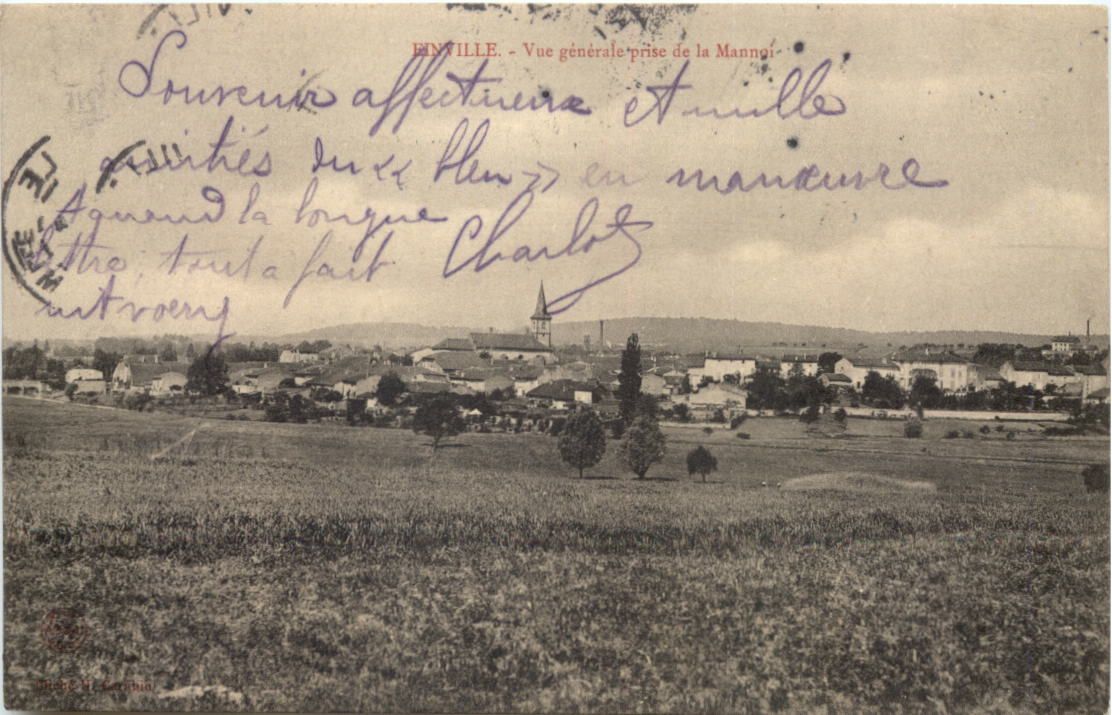 EINVILLE. - Vue générale prise de la Mannoi
Souvenir affectueux et mille
amitiés du « bleu » en manœuvre
A quand la longue
lettre, tout a fait Charlot